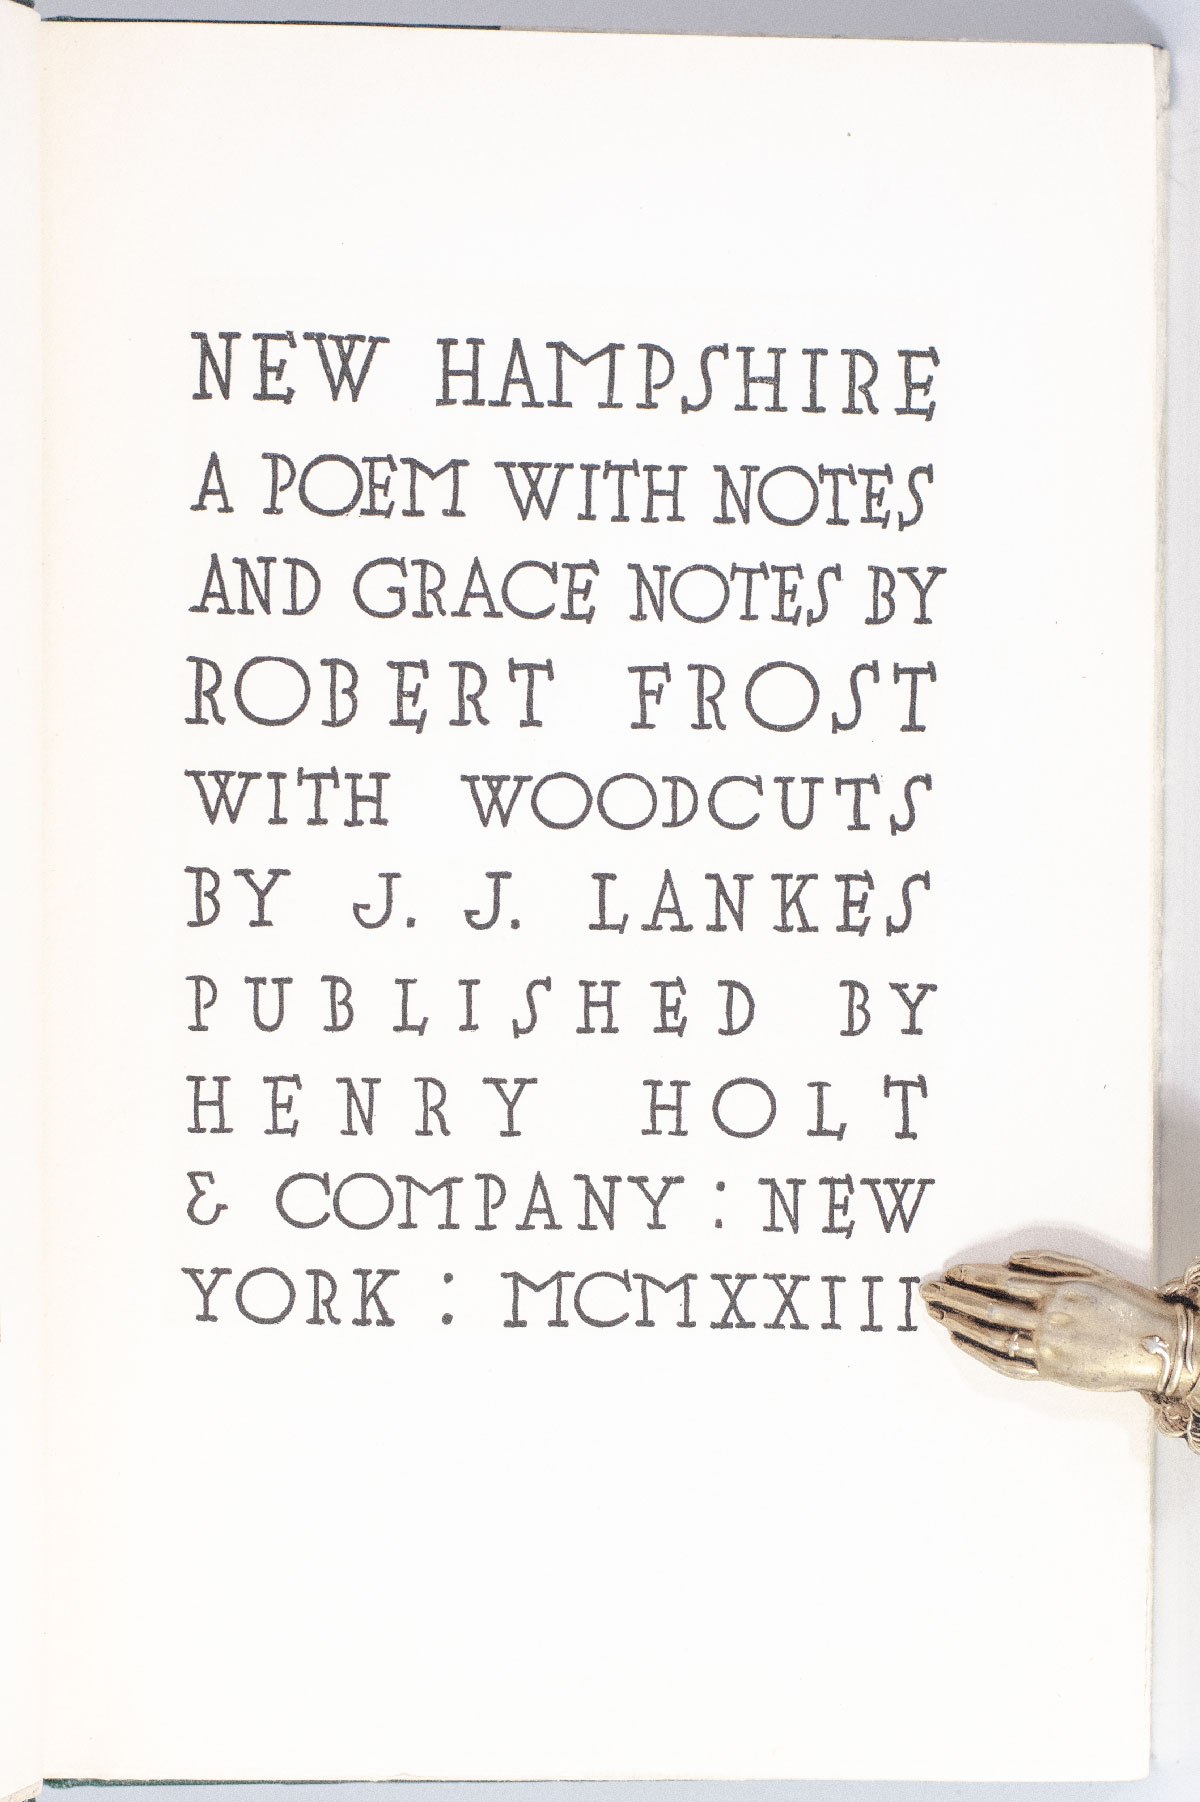 NEW HAMPSHIRE
A POEM WITH NOTES
AND GRACE NOTES BY
ROBERT FROST
WITH WOODCUTS
BY J. J. LANKES
PUBLISHED BY
HENRY HOLT
& COMPANY : NEW
YORK : MCMXXIII